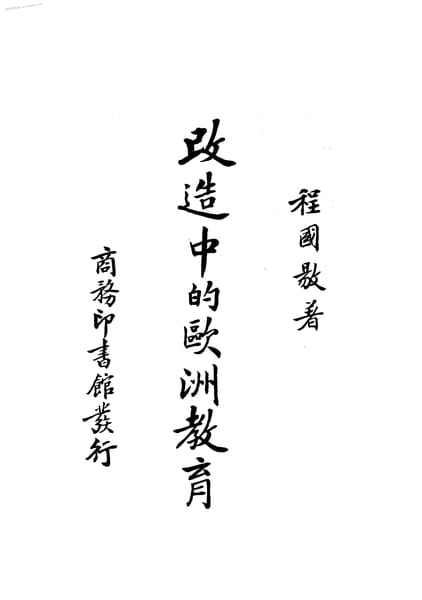 程國敭著
改造中的歐洲教育
商務印書館發行